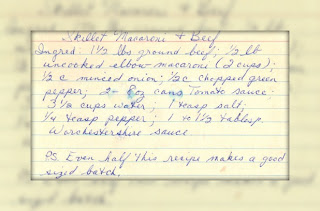 Skillet Macaroni + Beef
Ingred: 1 1/2 lbs ground beef; 1/2 lb
uncooked elbow macaroni (2 cups);
1/2 c minced onion; 1/2 c chopped green
pepper; 2- 8oz cans tomato sauce;
cups water; 1 teasp salt;
1/4 teasp pepper; 1 to 1 1/2 tablesp.
Worchestershire sauce
P.S. Even half this recipe makes a good
sized batch.